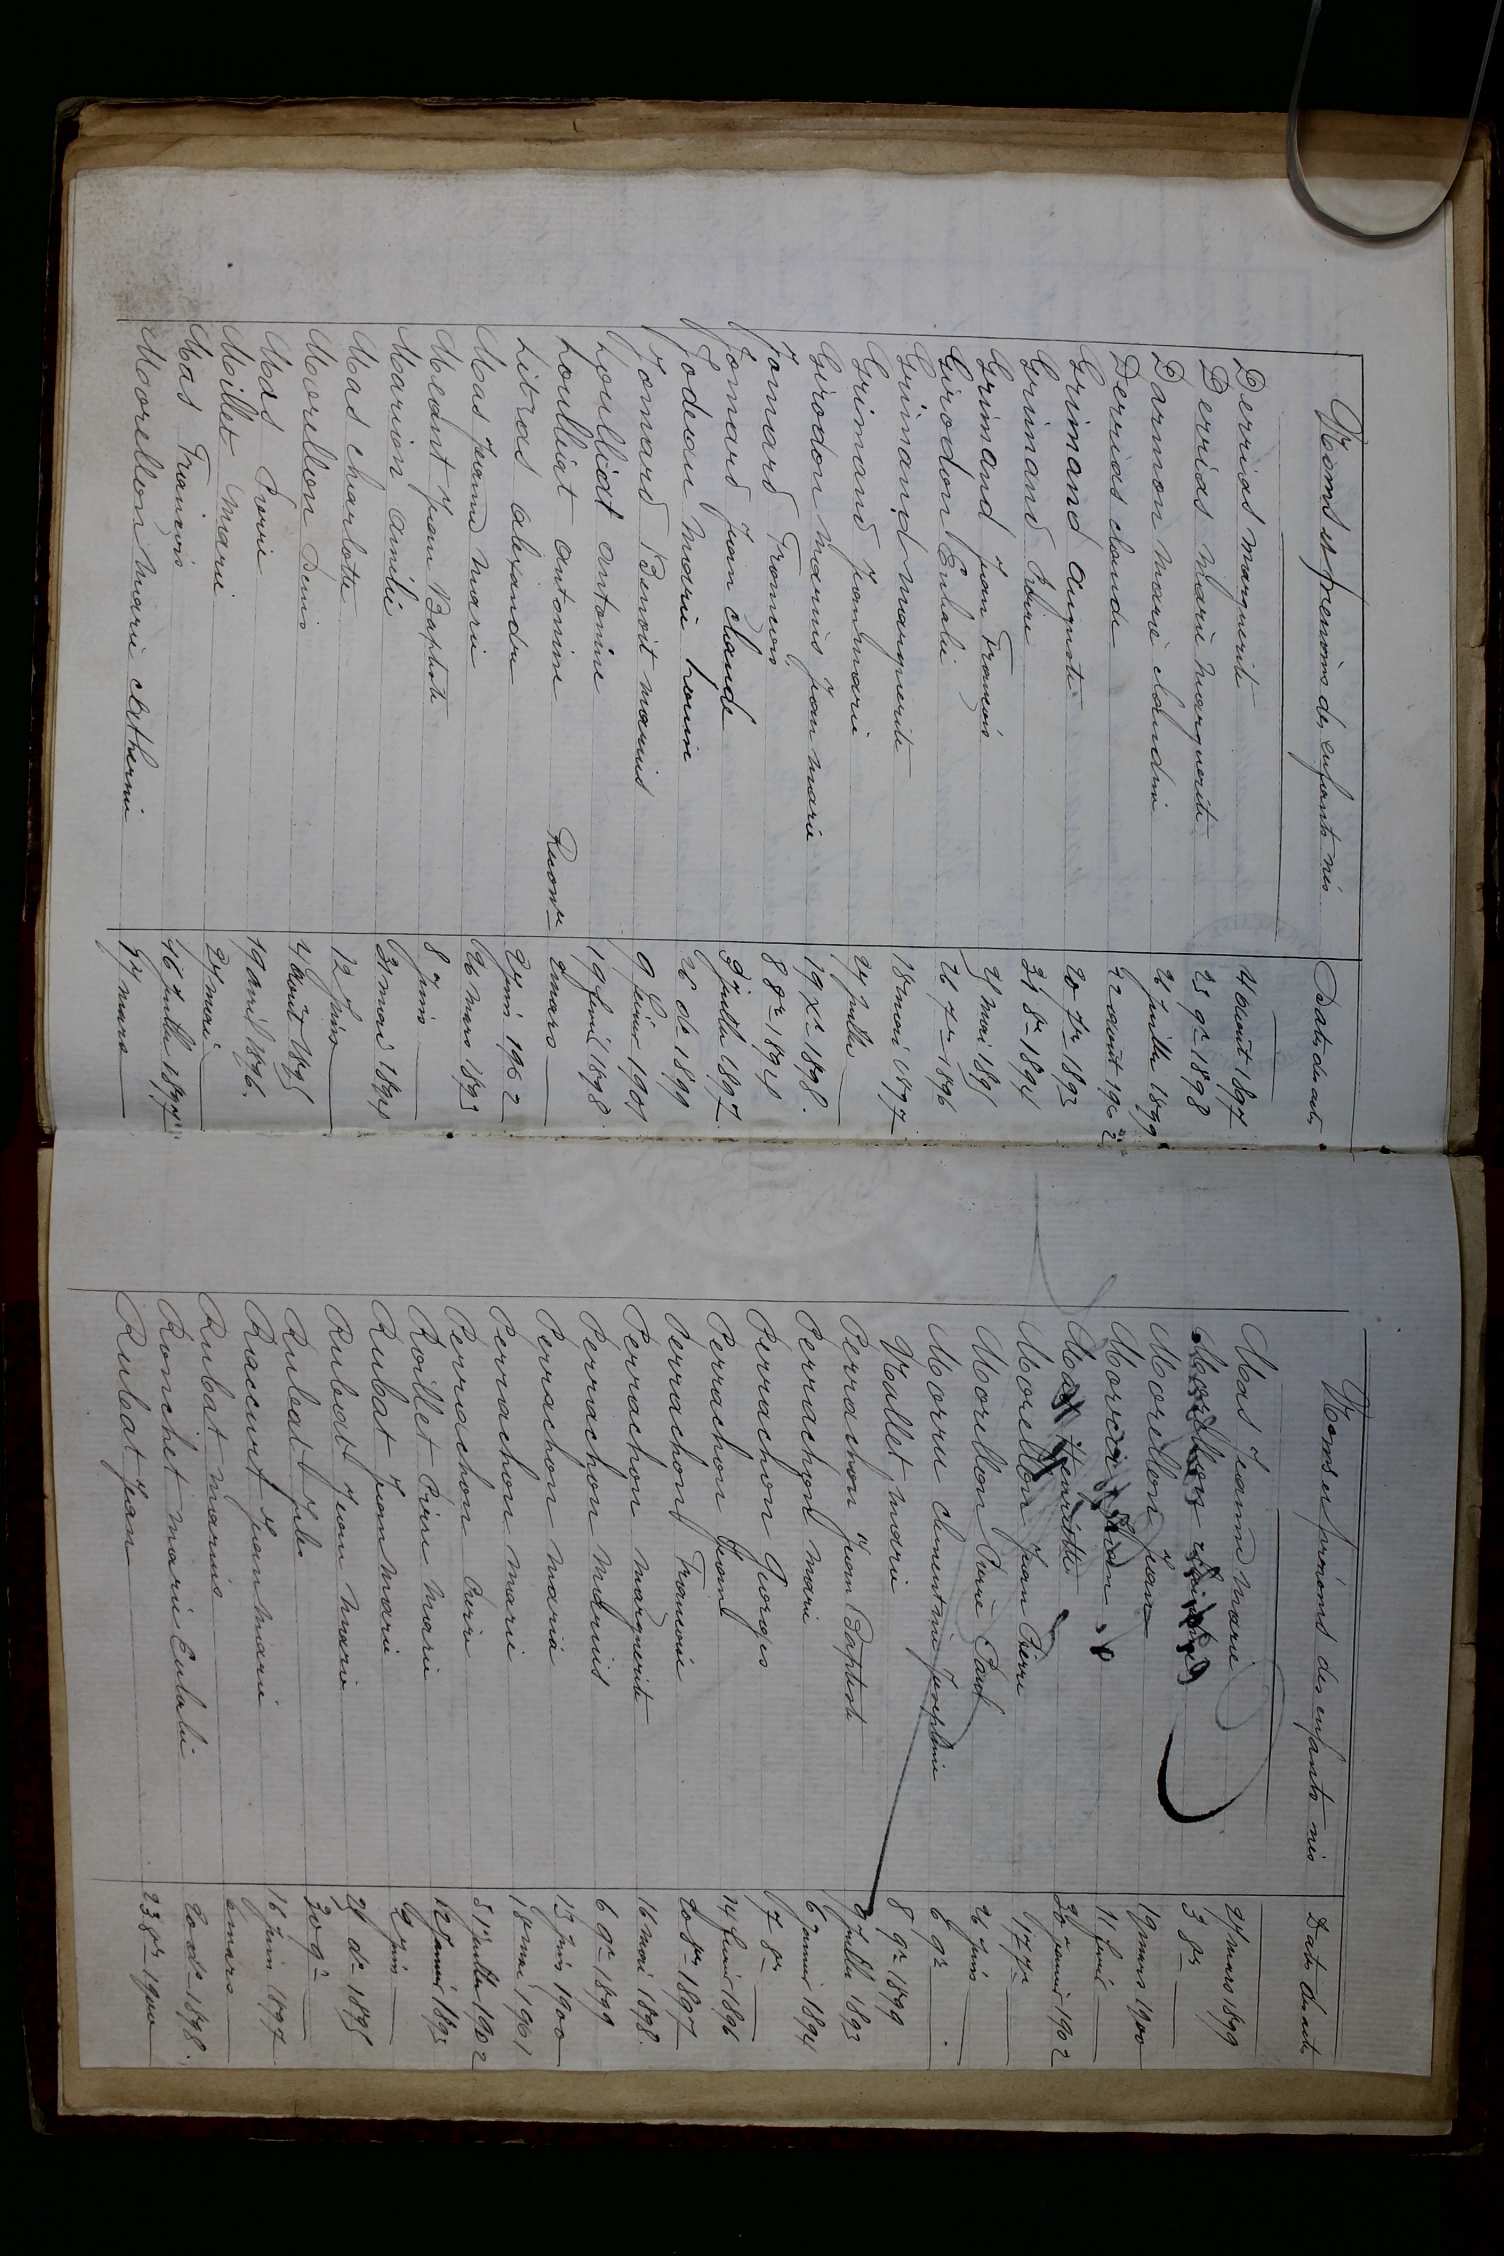 Noms et prénoms des enfants nés Date des actes
Derrias marguerite 4 août 1897
Derrias Marie Marguerite 23 9re 1898
Darmon Marie claudine 26 juillet 1899
Derrias claude 12 août 1902
Grimand auguste 20 7re 1893
Grimand Pierre 31 8re 1894
Grimand Jean François 21 mai 1895
Girodon Eulalie 26 7re 1896
Grimand Marguerite 18 mai 1897
Grimand Jean Marie 24 juillet —
Girodon Marius Jean Marie 19 Xre 1898.
Jomard François 8 8re 1894
Jomard Jean claude juillet 1897
Jodeau Marie Louise 26 de 1899
Jomard Benoit Marius 9 1901
Loulliat antonine 19 1898
Loulliat antonine 2 mars —
Litras alexandre juin 1902
Mas Jeanne Marie 26 mars 1893
Medant Jean Baptiste 8 juin —
Marion amélie 31 mars 1894
Mas charlotte 12 juin —
Morellon Denis 4 août 1895
Mas Pierre 19 avril 1896.
Millet Marie 24 mai —
Mas François 16 juillet 1897
Morellon Marie Catherine mars —
Noms et prénoms des enfants nés Date des actes
Mas Jeanne Marie 27 mars 1899
3 8re —
Morellon Jean 19 mars 1900
11 —
Mas Henriette 1902
Morellon Jean Pierre 17 7re —
Morellon Pierre Paul 26 juin —
Morru clementine Josephine 6 9re —
Nallet Marie 8 9re 1899
Perrachon Jean Baptiste juillet 1893
Perrachon Marie 6 janvier 1894
Perrachon Georges 7 8re —
Perrachon Jeanne 14 1896
Perrachon Francoise 20 8re 1897
Perrachon Marguerite 16 mai 1898.
Perrachon Marius 6 9re 1899
Perrachon Maria 13 juin 1900
Perrachon Marie 18 mai 1901
Perrachon Pierre 31 juillet 1902
Roillet Pierre Marie 12 janvier 1893
Rubat Jean Marie juin —
Rubat Jean Marie de 1895
Rubat Jules 30 9re —
Raccurt Jean Marie 16 juin 1897
Rubat Marius mars —
Ronchet Marie Eulalie 20 de 1898.
Rubat Jean 23 8re 1900